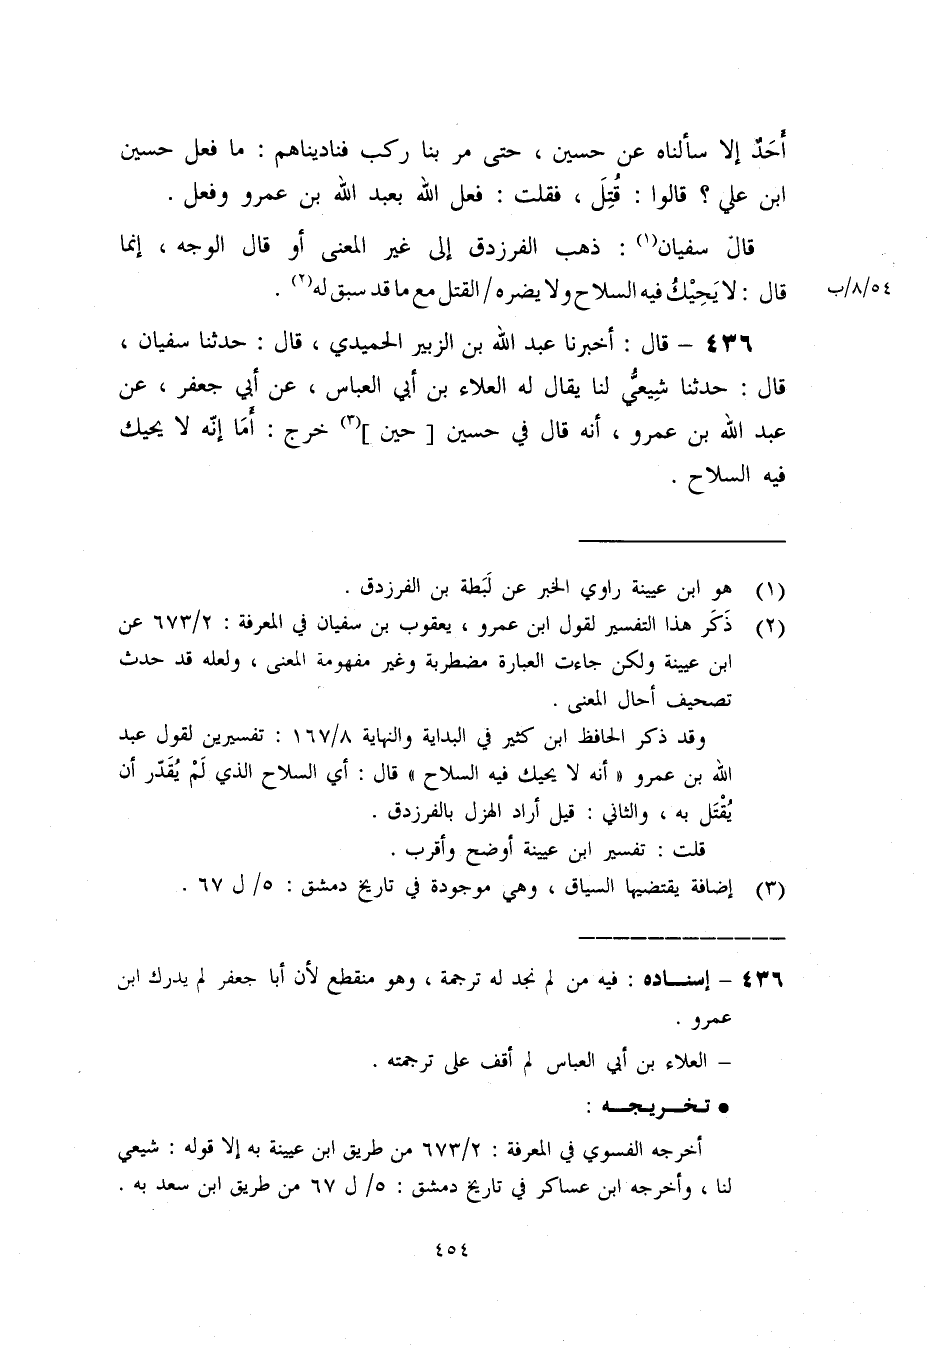 أَحَدٌ إلا سألناه عن حسين ، حتى مر بنا ركب فناديناهم : ما فعل حسين
ابن علي ؟ قالوا : قُتِلَ ، فقلت : فعل الله بعبد الله بن عمرو وفعل .
قال سفيان(١) : ذهب الفرزدق إلى غير المعنى أو قال الوجه ، إنما
قال : لا يَحِيْكُ فيه السلاح ولا يضره / القتل مع ما قد سبق له(٢) .
٨/٥٤/ب
٤٣٦ – قال : أخبرنا عبد الله بن الزبير الحميدي ، قال : حدثنا سفيان ،
قال : حدثنا شِيعيٌّ لنا يقال له العلاء بن أبي العباس ، عن أبي جعفر ، عن
عبد الله بن عمرو ، أنه قال في حسين [ حين ](٣) خرج : أَمَا إنّه لا يحيك
فيه السلاح .
(١) هو ابن عيينة راوي الخبر عن لَبَطة بن الفرزدق .
(٢) ذَكَر هذا التفسير لقول ابن عمرو ، يعقوب بن سفيان في المعرفة : ٦٧٣/٢ عن
ابن عيينة ولكن جاءت العبارة مضطربة وغير مفهومة المعنى ، ولعله قد حدث
تصحيف أحال المعنى .
وقد ذكر الحافظ ابن كثير في البداية والنهاية ١٦٧/٨ : تفسيرين لقول عبد
الله بن عمرو « أنه لا يحيك فيه السلاح » قال : أي السلاح الذي لَمْ يُقَدّر أن
يُقْتَل به ، والثاني : قيل أراد الهزل بالفرزدق .
قلت : تفسير ابن عيينة أوضح وأقرب .
(٣) إضافة يقتضيها السياق ، وهي موجودة في تاريخ دمشق : ٥/ ل ٦٧ .
٤٣٦ – إسناده : فيه من لم نجد له ترجمة ، وهو منقطع لأن أبا جعفر لم يدرك ابن
عمرو .
– العلاء بن أبي العباس لم أقف على ترجمته .
• تخريجه :
أخرجه الفسوي في المعرفة : ٦٧٣/٢ من طريق ابن عيينة به إلا قوله : شيعي
لنا ، وأخرجه ابن عساكر في تاريخ دمشق : ٥/ ل ٦٧ من طريق ابن سعد به .
٤٥٤